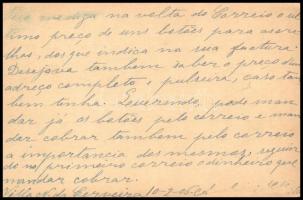 me diga na volta do Correio o ul-
timo preço de uns botões para ore-
lhas, dos que indica na sua factura.
Desejava tambem saber o preço d'um
adreço completo, e pulseira, caso tam-
bem tenha. Querendo, pode man-
dar já os botões pelo correio e man-
dar cobrar tambem pelo correio
a importancia dos mesmos,
do no primeiro correio o dinheiro que
mandar cobrar.
Villa N. de Cerveira 10-2-